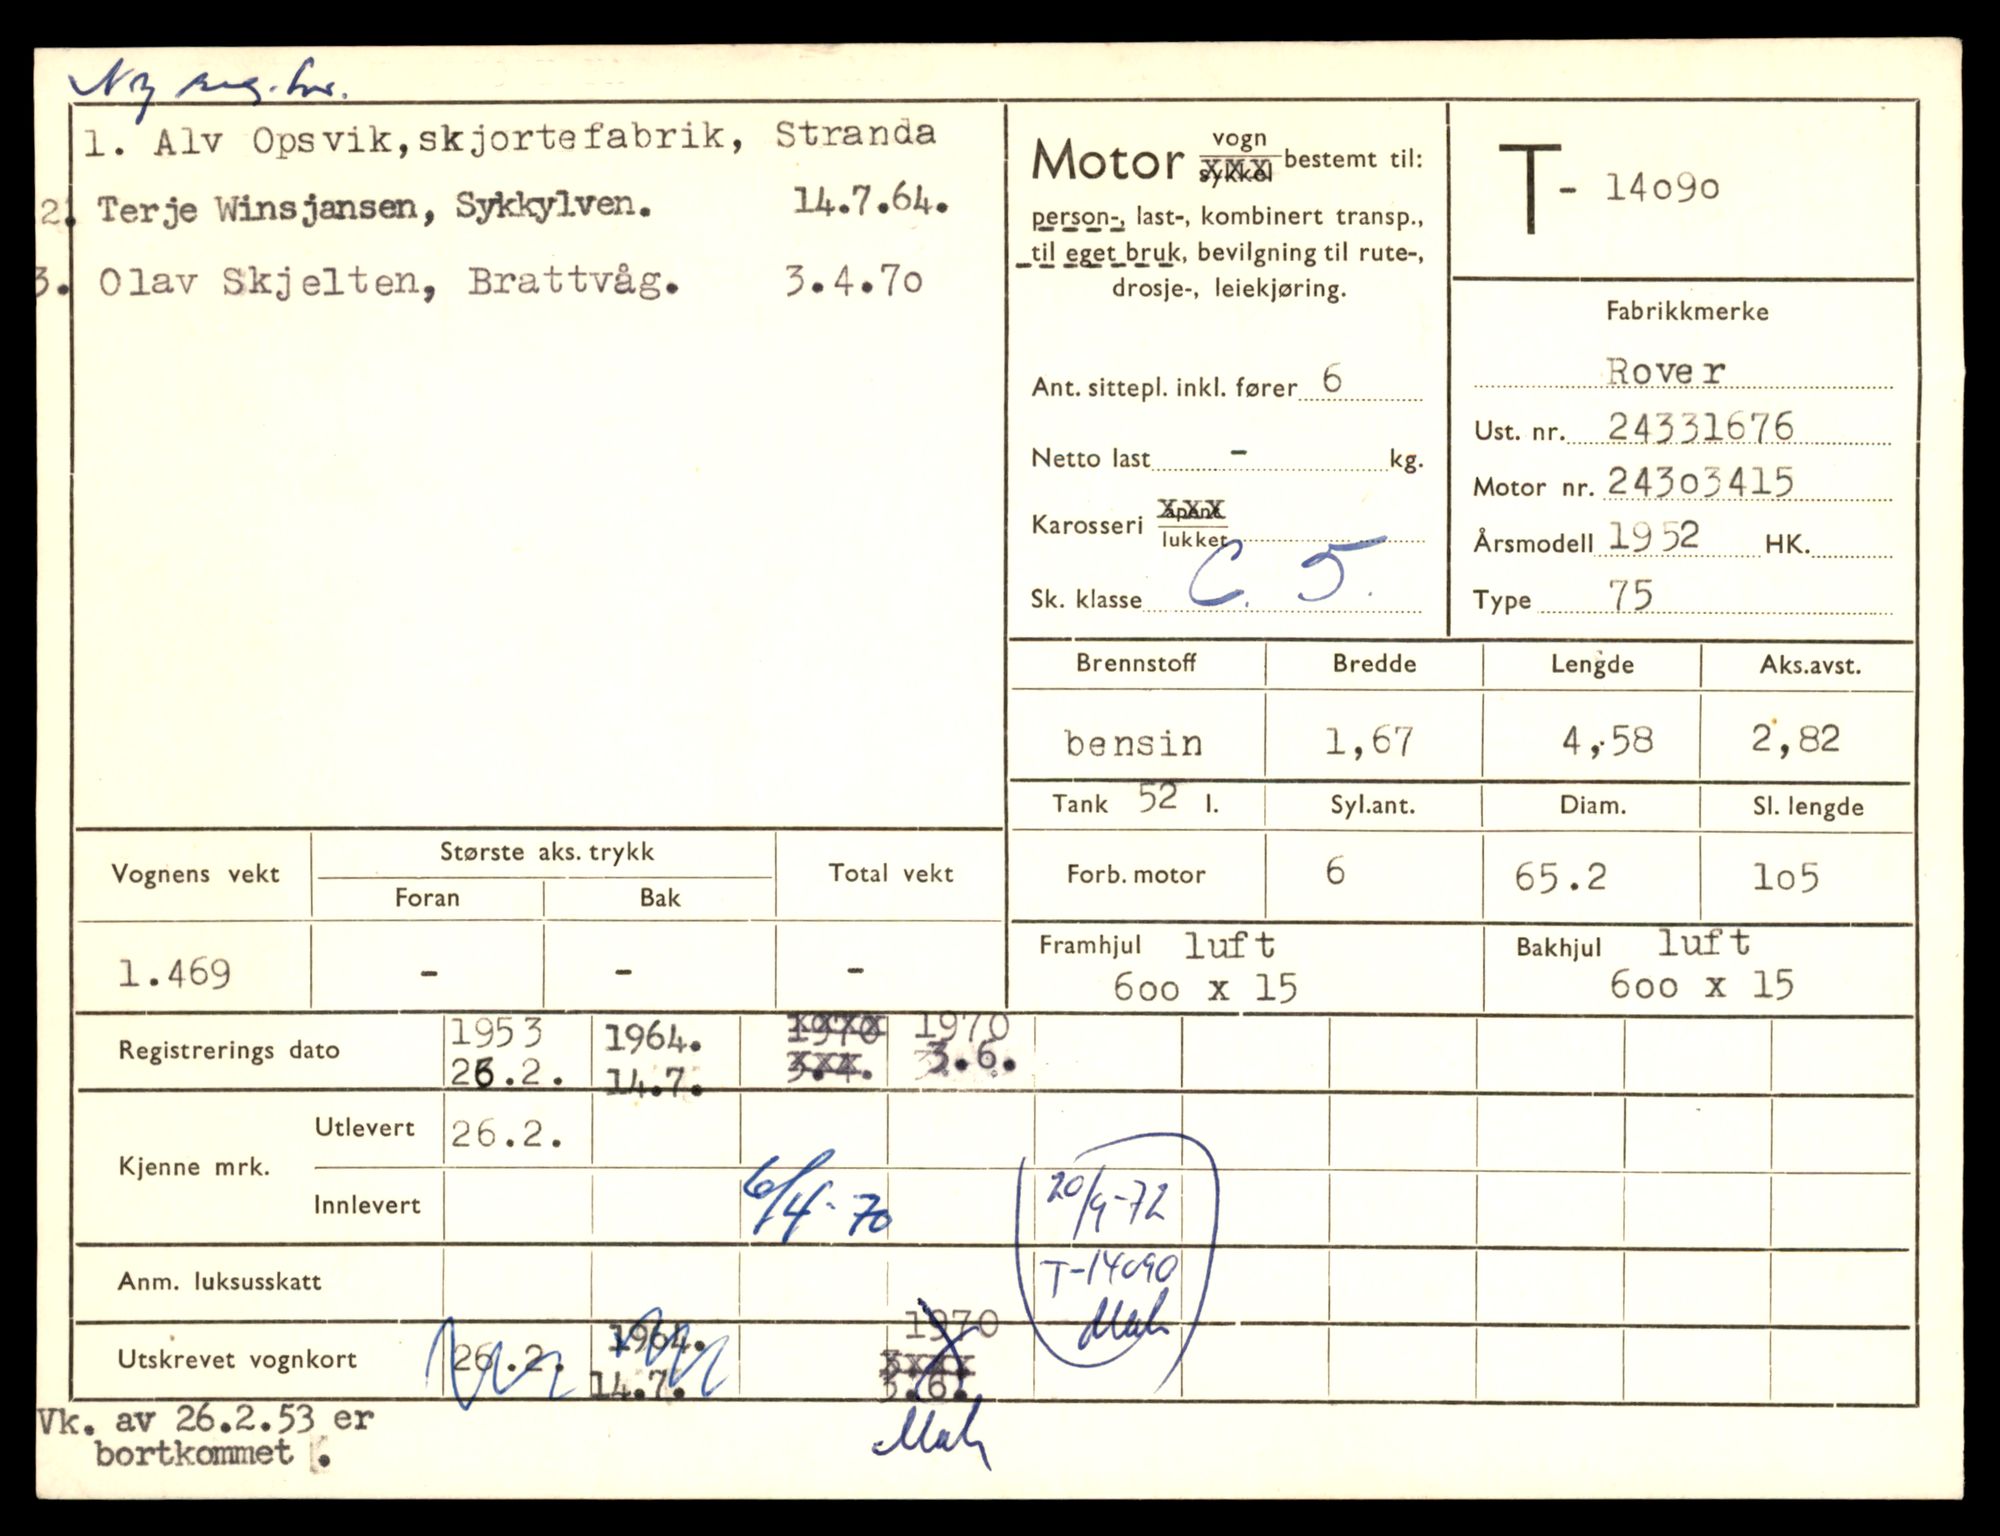 Ny reg.br.
1. Alv Opsvik,skjortefabrik, Stranda
2. Terje Winsjansen, Sykkylven. 14.7.64.
3. Olav Skjelten, Brattvåg. 3.4.70
Motor vogn bestemt til:
sykkel
person-, last-, kombinert transp.,
til eget bruk, bevilgning til rute-,
drosje-, leiekjøring.
Ant. sittepl. inkl. fører 6
Netto last - kg.
Karosseri åpent
lukket
Sk. klasse C. 5.
T- 14090
Fabrikkmerke
Rover
Ust. nr. 24331676
Motor nr. 24303415
Årsmodell 1952 HK.
Type 75
Brennstoff Bredde Lengde Aks.avst.
bensin 1,67 4,58 2,82
Tank 52 l. Syl.ant. Diam. Sl. lengde
Forb. motor 6 65.2 105
Framhjul luft Bakhjul luft
600 x 15 600 x 15
Vognens vekt Største aks. trykk Total vekt
Foran Bak
1.469 - - -
Registrerings dato 1953 1964. 1970 1970
26.2. 14.7. 3.4. 3.6.
Kjenne mrk. Utlevert 26.2.
Innlevert 6/4-70 20/9-72
Anm. luksusskatt T-14090
Utskrevet vognkort 26.2. 1964. 1970
14.7. 3.6.
Vk. av 26.2.53 er
bortkommet .